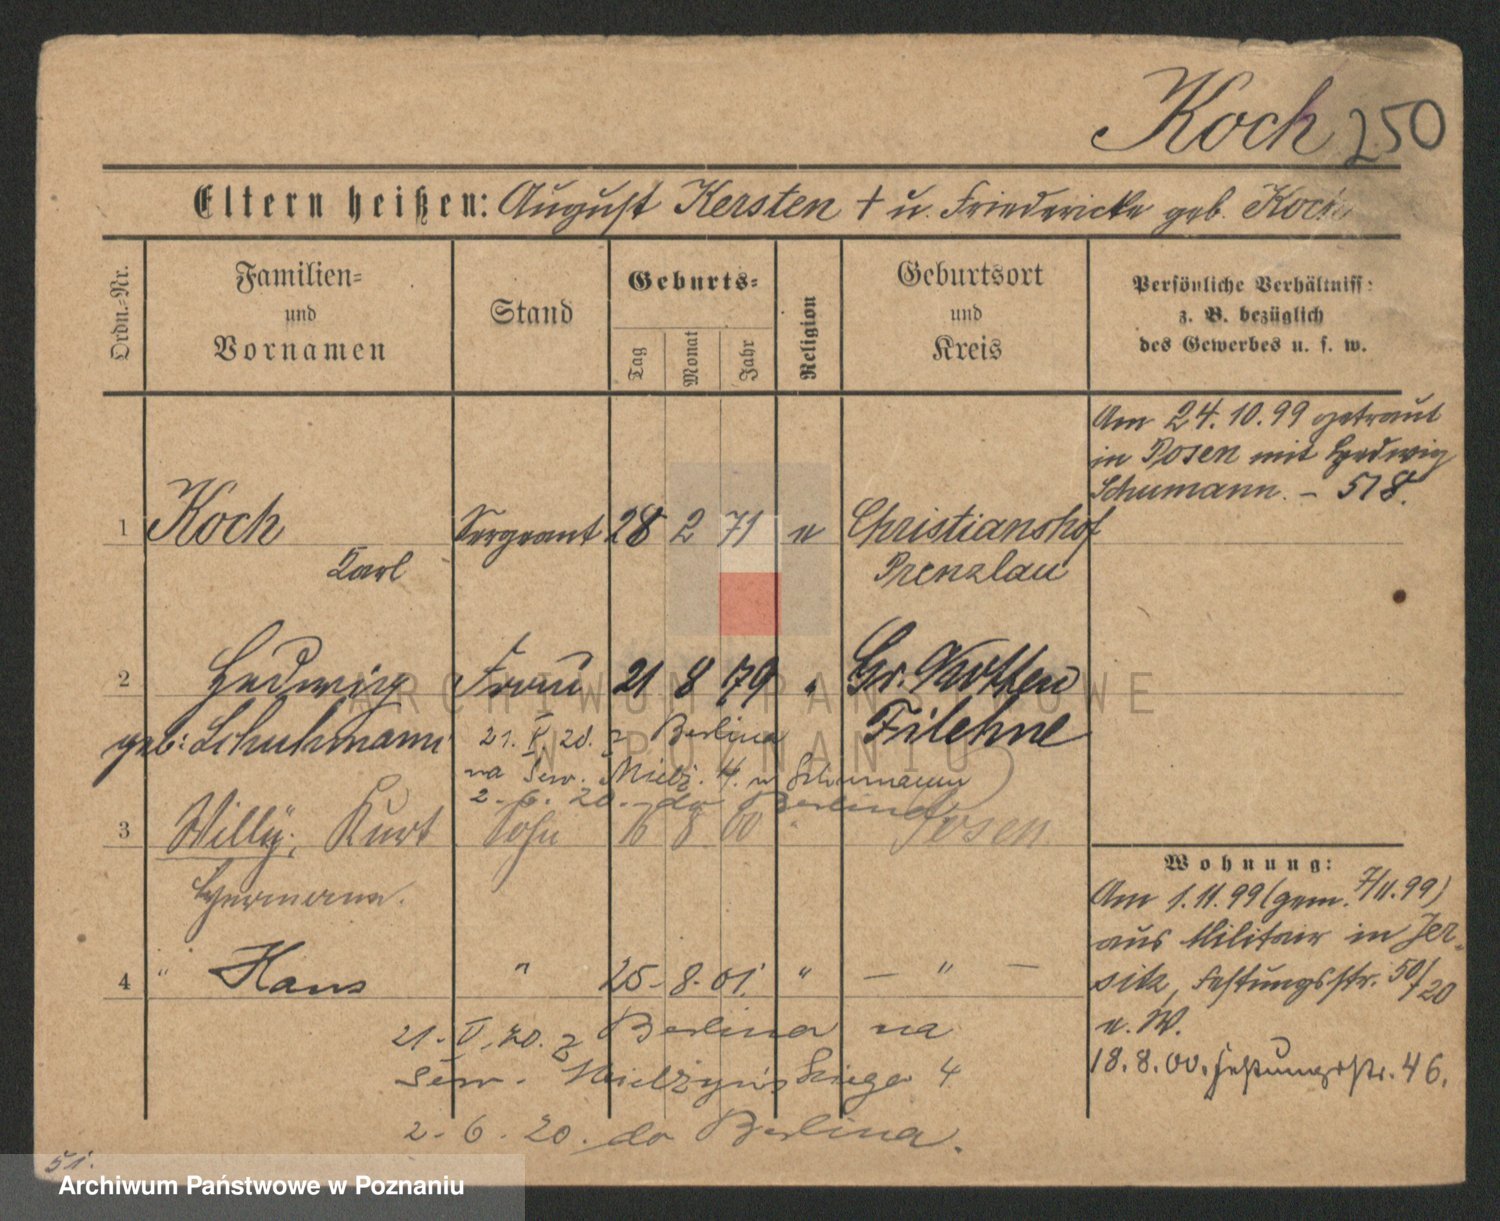 Koch 250
Eltern heißen: August Kersten † u. Friedericke geb. Koch
Ordn.-Nr.
Familien- und Vornamen
Stand
Geburts-
Tag
Monat
Jahr
Religion
Geburtsort und Kreis
Persönliche Verhältniss:
z. B. bezüglich
des Gewerbes u. s. w.
Am 24.10.99 getraut
in Posen mit Hedwig
Schumann. – 518.
1 Koch Sergeant 28 2 71 e Christianshof
Karl Prenzlau
2 Hedwig Frau 21 8 79 " Gr. Kotten
geb: Schuhmann Filehne
21. V. 20. z Berlina
na Sew. Mielż. 4. u Schumann
2. 6. 20. do Berlina
3 Willy, Kurt Sohn 16 8 00 " Posen
Hermann.
4 " Hans " 25. 8. 01. " — " —
21. V. 20. z Berlina na
Sew. Mielżyńskiego 4
2. 6. 20. do Berlina.
Wohnung:
Am 1.11.99 (gem. 7/11.99)
aus Militair in Jer-
sitz, Festungsstr. 50/20
e. W.
18.8.00. Festungsstr. 46.
51.
ARCHIWUM PAŃSTWOWE
W POZNANIU
Archiwum Państwowe w Poznaniu